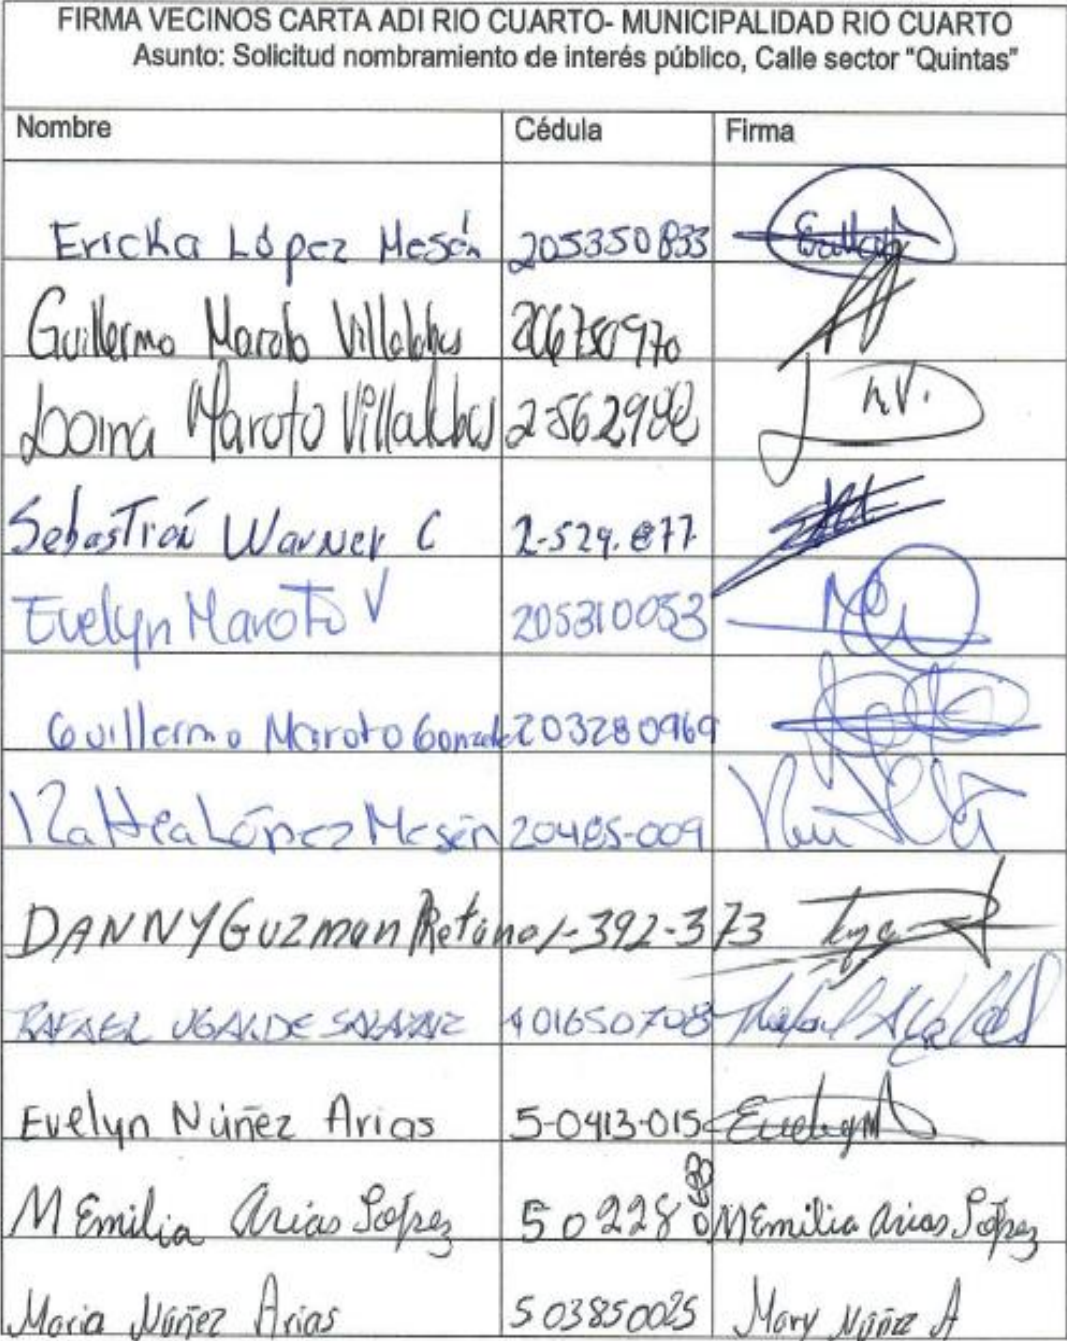 FIRMA VECINOS CARTA ADI RIO CUARTO- MUNICIPALIDAD RIO CUARTO
Asunto: Solicitud nombramiento de interés público, Calle sector "Quintas"
Nombre Cédula Firma
Ericka López Mesén 205350833
Guillermo Maroto Villalobos 206750970
Maroto Villalobos
Sebastián Warner C 2-529.877
Evelyn Maroto V 205310053
Guillermo Maroto Gonzalez 203280969
Kattea López Mesén 20485-009
DANNY GUZman Retana 1-392-373
RAFAEL UGALDE SALAZAR 401650708
Evelyn Núñez Arias 5-0413-015 Evelyn
M Emilia Arias López 50228 M Emilia Arias López
Maria Núñez Arias 503850025 Mary Núñez A